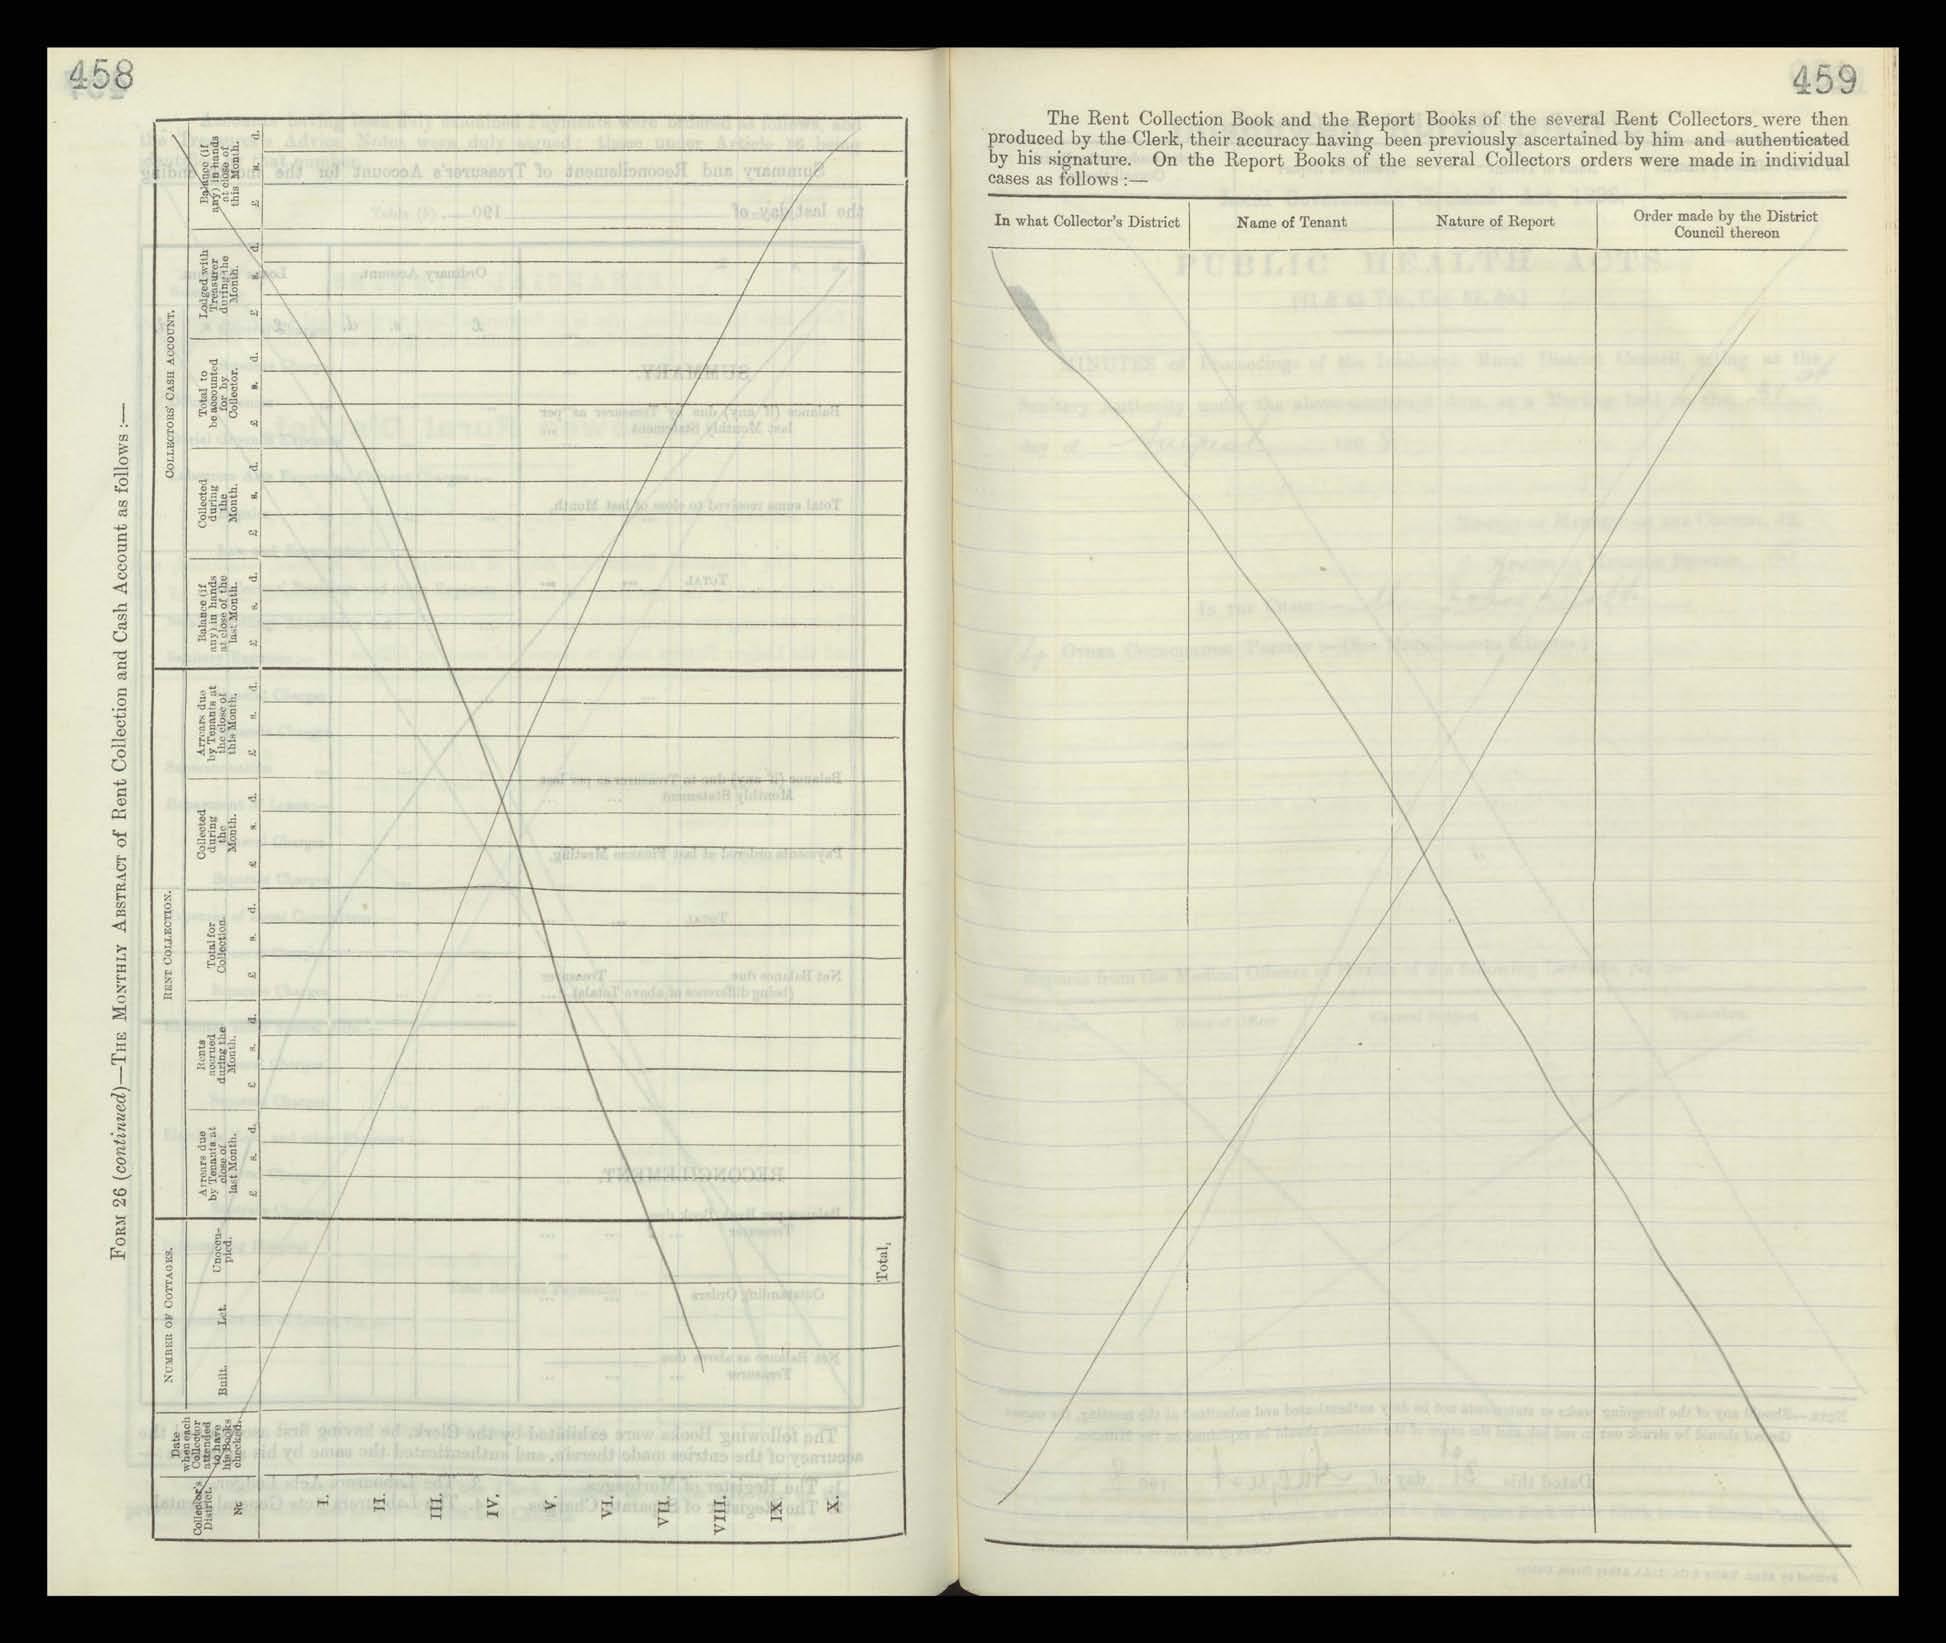 458
FORM 26 (continued)—THE MONTHLY ABSTRACT of Rent Collection and Cash Account as follows :—
Collector's District.
No
Date when each Collector attended to have his Books checked.
NUMBER OF COTTAGES.
Built.
Let.
Unoccu-
pied.
RENT COLLECTION.
Arrears due
by Tenants at
close of
last Month.
£ s. d.
Rents
accrued
during the
Month.
£ s. d.
Total for
Collection.
£ s. d.
Collected
during
the
Month.
£ s. d.
Arrears due
by Tenants at
the close of
this Month.
£ s. d.
COLLECTORS' CASH ACCOUNT.
Balance (if
any) in hands
at close of the
last Month.
£ s. d.
Collected
during
the
Month.
£ s. d.
Total to
be accounted
for by
Collector.
£ s. d.
Lodged with
Treasurer
during the
Month.
£ s. d.
Balance (if
any) in hands
at close of
this Month.
£ s. d.
I.
II.
III.
IV.
V.
VI.
VII.
VIII.
IX
X.
Total,
459
The Rent Collection Book and the Report Books of the several Rent Collectors were then
produced by the Clerk, their accuracy having been previously ascertained by him and authenticated
by his signature. On the Report Books of the several Collectors orders were made in individual
cases as follows :—
In what Collector's District
Name of Tenant
Nature of Report
Order made by the District
Council thereon